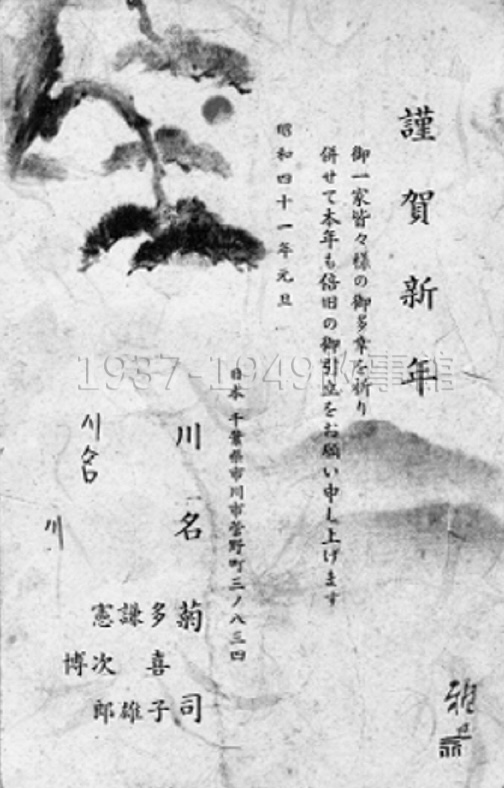 謹賀新年
御一家皆々様の御多幸を祈り
併せて本年も倍旧の御引立をお願い申し上げます
昭和四十一年元旦
日本 千葉県市川市菅野町三ノ八三四
川名菊司
多喜子
謙雄
憲次郎
博
川
1937-1949